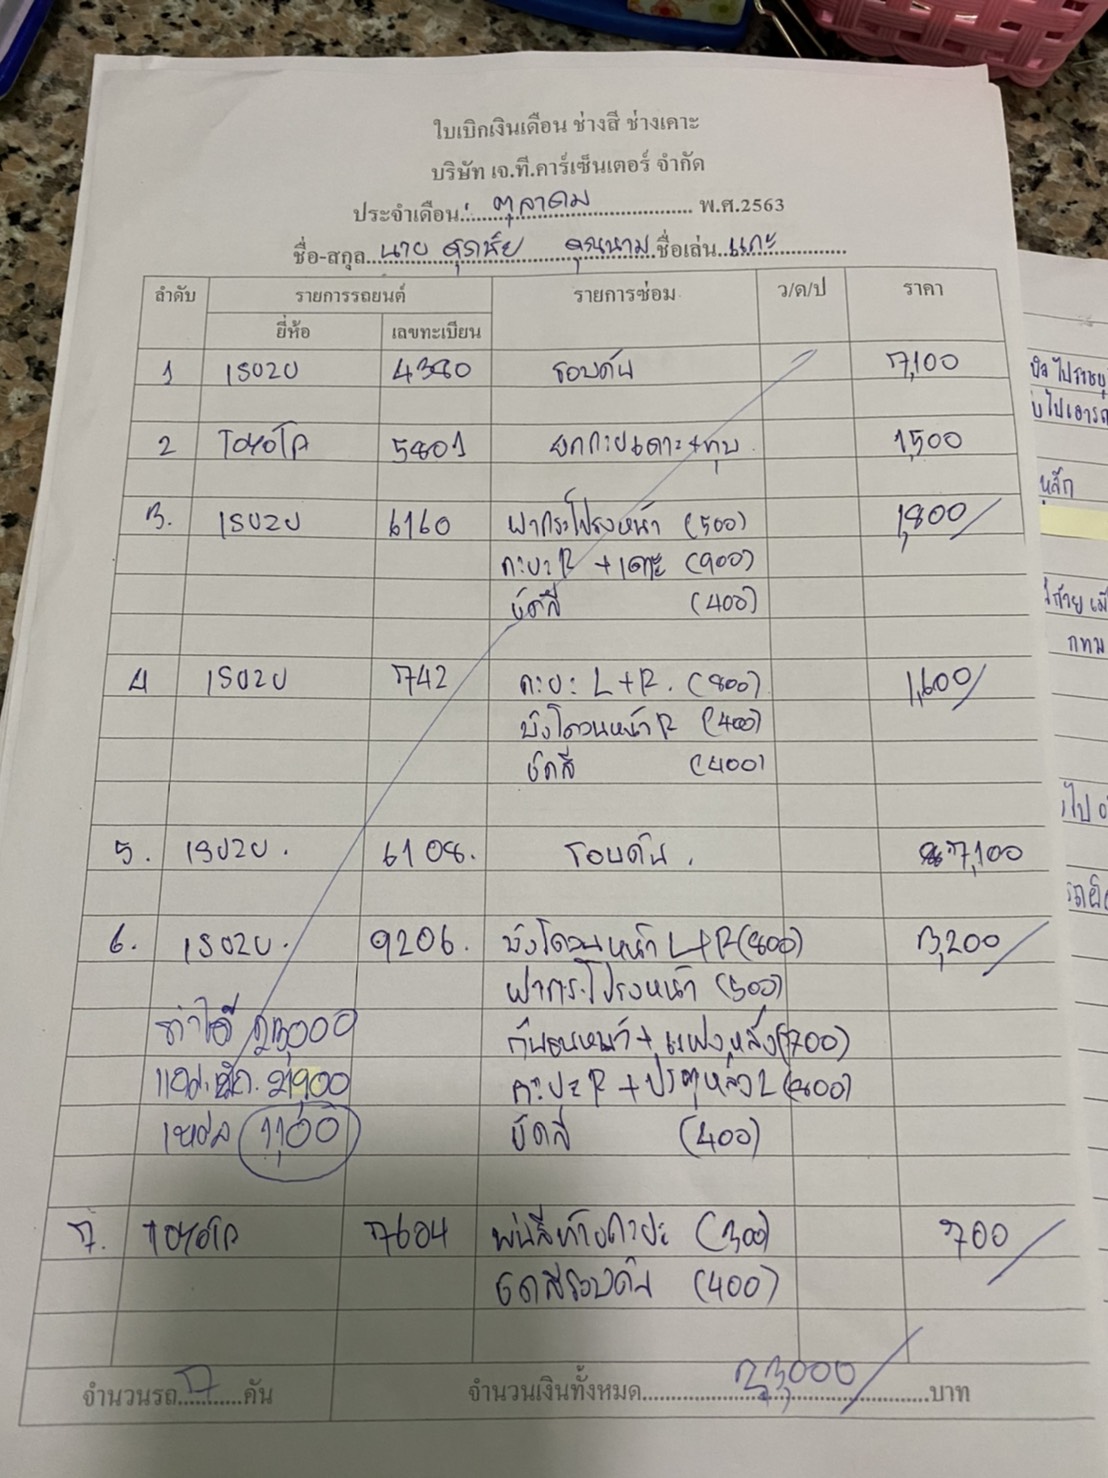 ใบเบิกเงินเดือน ช่างสี ช่างเคาะ
บริษัท เจ.ที.คาร์เซ็นเตอร์ จำกัด
ประจำเดือน ตุลาคม พ.ศ.2563
ชื่อ-สกุล นาย ศุภชัย คุณนาม ชื่อเล่น แกะ
ลำดับ รายการรถยนต์ รายการซ่อม ว/ด/ป ราคา
ยี่ห้อ เลขทะเบียน
1 ISUZU 4380 รอบคัน 7,100
2 TOYOTA 5801 1,500
3. ISUZU 6160 ฝากระโปรงหน้า (500) 1,800
กะบะ R + เคาะ (900)
ขัดสี (400)
4 ISUZU 742 กะบะ L+R. (800) 1,600
บังโคลนหน้า R (400)
ขัดสี (400)
5. ISUZU. 6108. รอบคัน. 7,100
6. ISUZU. 9206. บังโคลนหน้า L+R (800) 3,200
ฝากระโปรงหน้า (500)
ทำได้ 23,000 กันชนหน้า + (700)
21,900 กะบะ R + ประตูหลัง L (800)
เหลือ 1,100 ขัดสี (400)
7. TOYOTA 7604 พ่นสีท้ายกะบะ (300) 700
ขัดสีรอบคัน (400)
จำนวนรถ 7 คัน จำนวนเงินทั้งหมด 23,000 บาท
บิล ไปราชบุ
ไปเอารถ
กทม